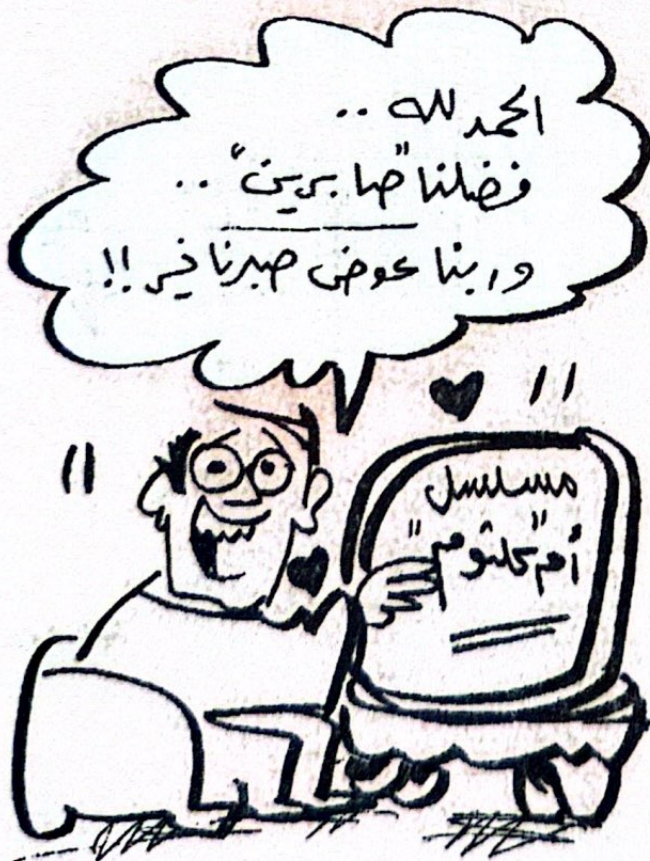 الحمد لله ..
فضلنا "صابرين" ..
وربنا عوض صبرنا خير !!
مسلسل
"أم كلثوم"